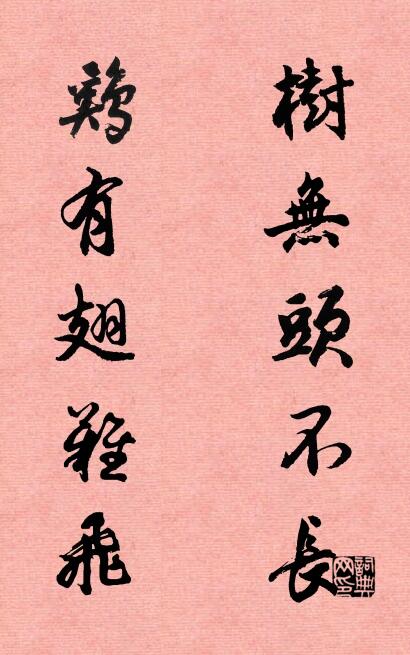 樹無頭不長
鷄有翅難飛
詞典网印